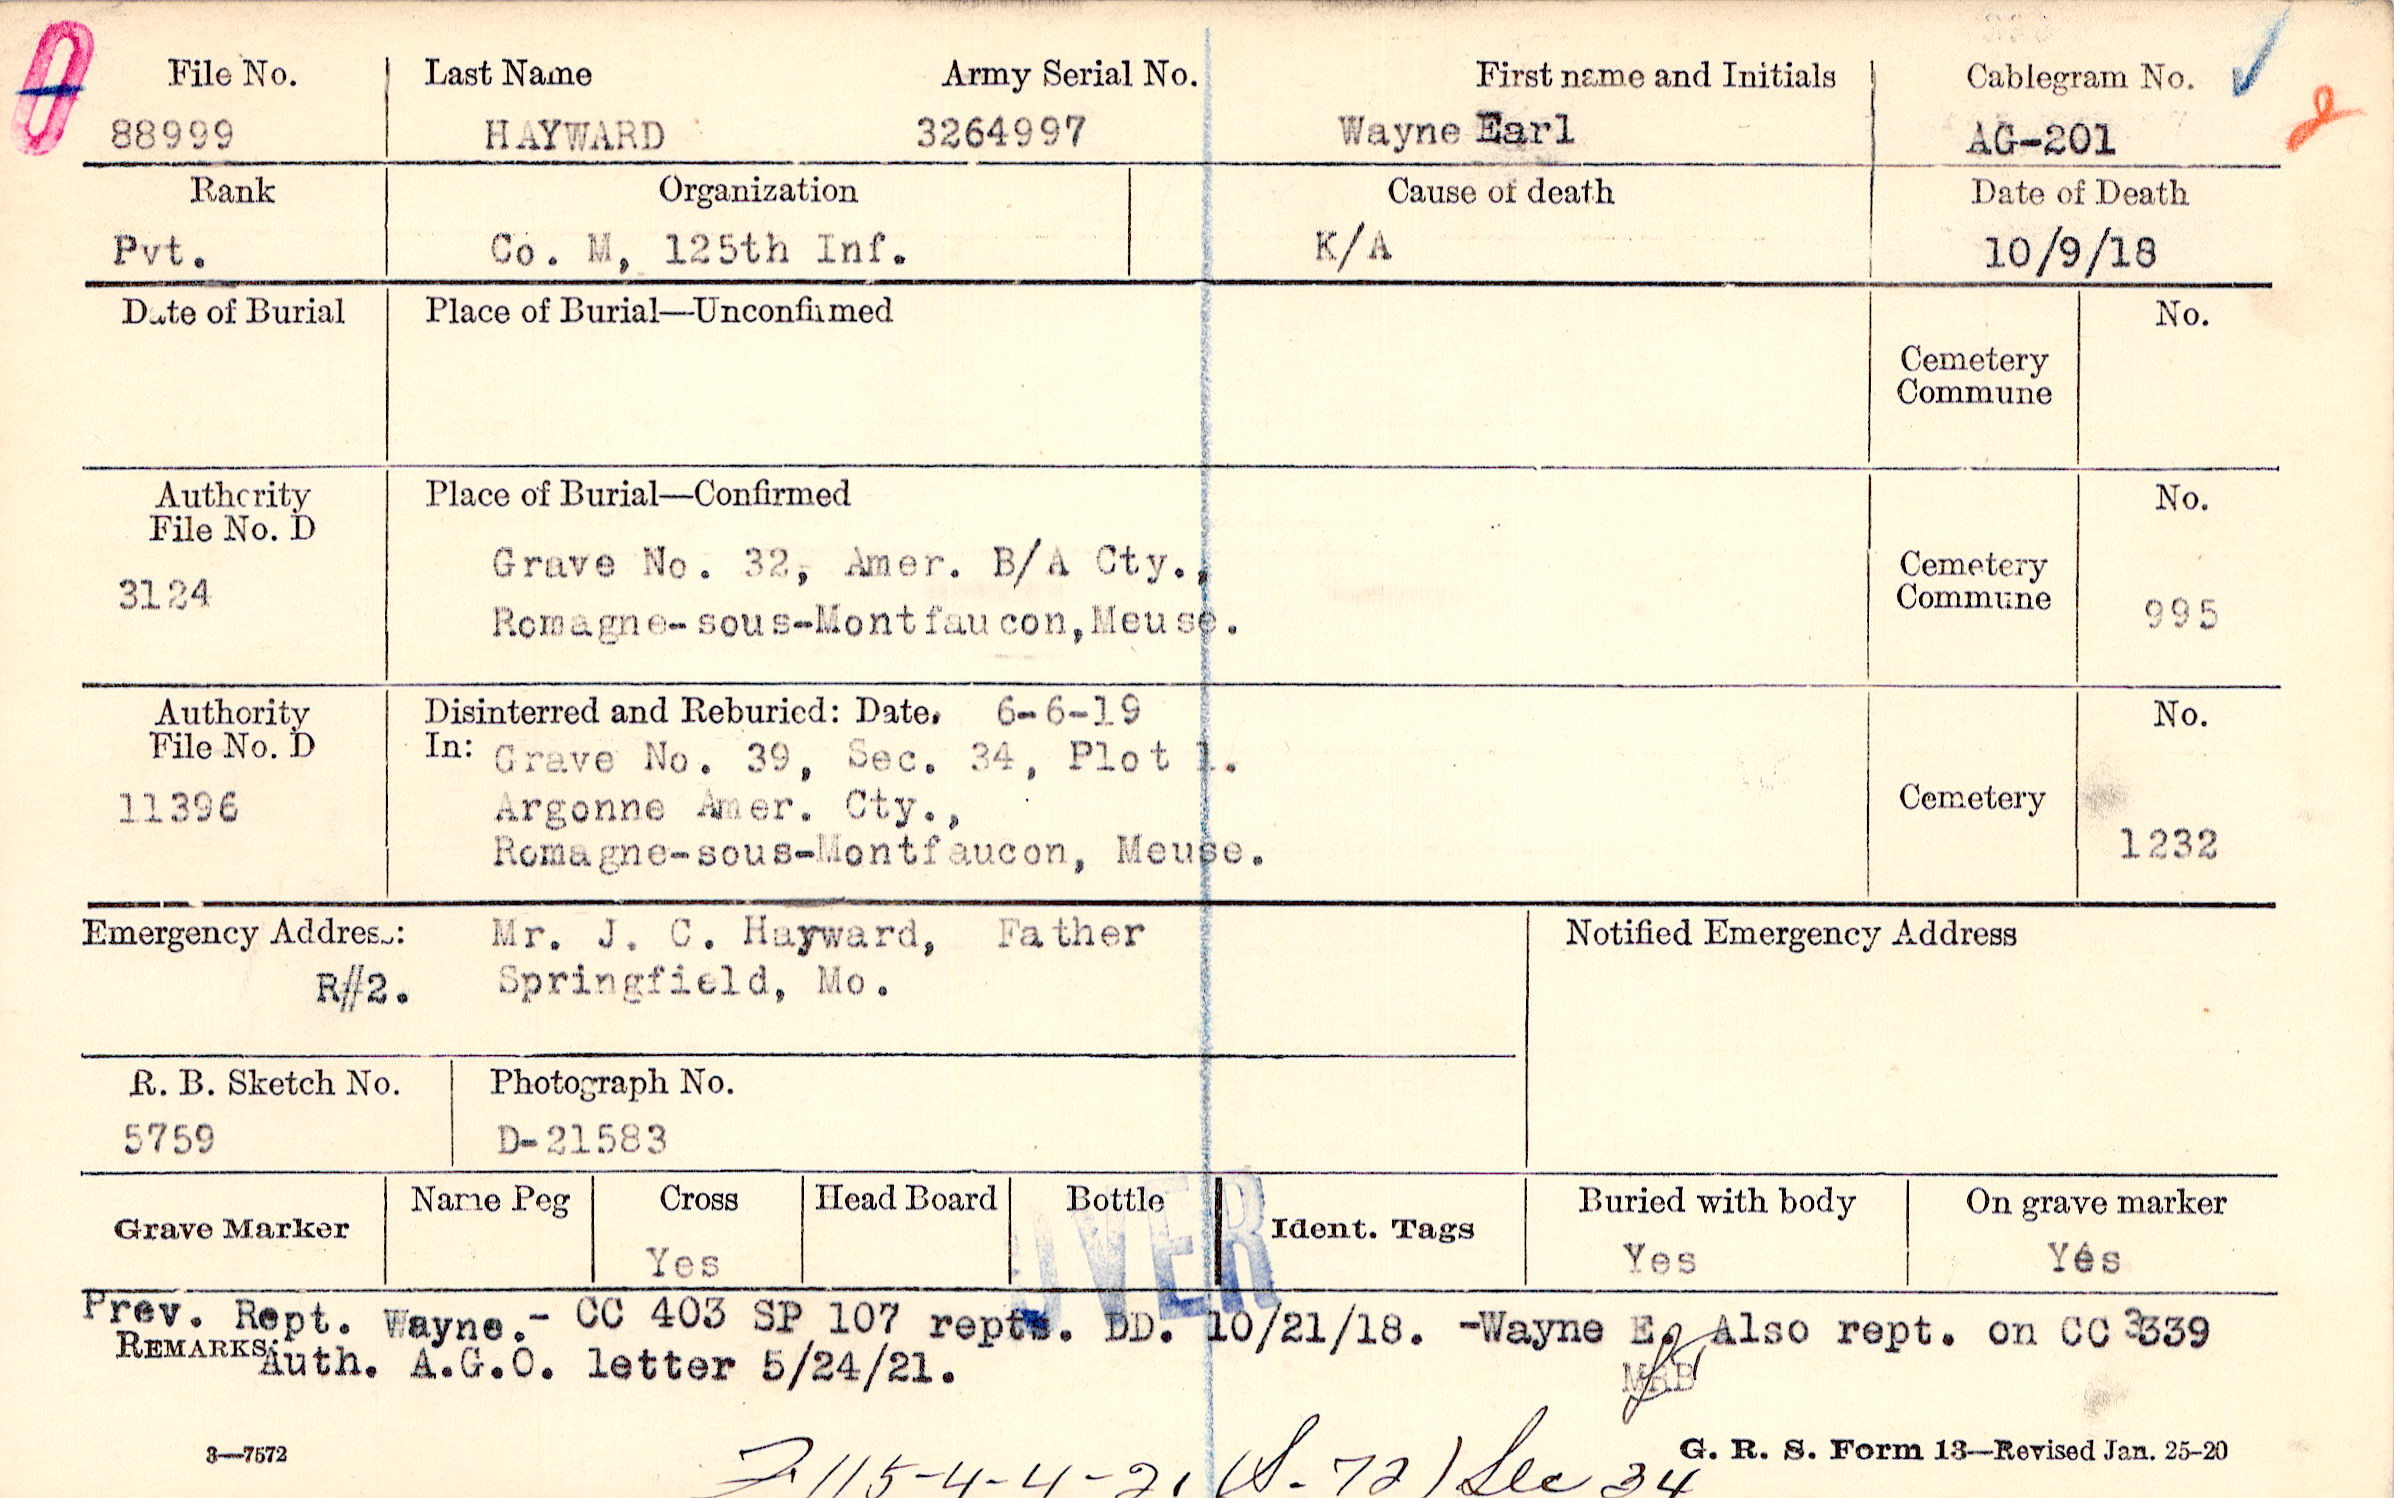 File No. Last Name Army Serial No. First name and Initials Cablegram No.
88999 HAYWARD 3264997 Wayne Earl AG-201
2
Rank Organization Cause of death Date of Death
Pvt. Co. M, 125th Inf. K/A 10/9/18
Date of Burial Place of Burial—Unconfirmed No.
Cemetery
Commune
Authority Place of Burial—Confirmed No.
File No. D
Grave No. 32, Amer. B/A Cty., Cemetery
3124 Commune
Romagne-sous-Montfaucon,Meuse. 995
Authority Disinterred and Reburied: Date. 6-6-19 No.
File No. D In: Grave No. 39, Sec. 34, Plot 1.
11396 Argonne Amer. Cty., Cemetery
Romagne-sous-Montfaucon, Meuse. 1232
Emergency Address: Mr. J. C. Hayward, Father Notified Emergency Address
R#2. Springfield, Mo.
R. B. Sketch No. Photograph No.
5759 D-21583
Grave Marker Name Peg Cross Head Board Bottle Ident. Tags Buried with body On grave marker
Yes Yes Yes
OVER
Prev. Rept. Wayne.- CC 403 SP 107 repts. DD. 10/21/18. -Wayne E. Also rept. on CC 3339
REMARKS: Auth. A.G.O. letter 5/24/21. MRB
3—7572 G. R. S. Form 13—Revised Jan. 25-20
115-4-4-21 (S-72) Sec 34